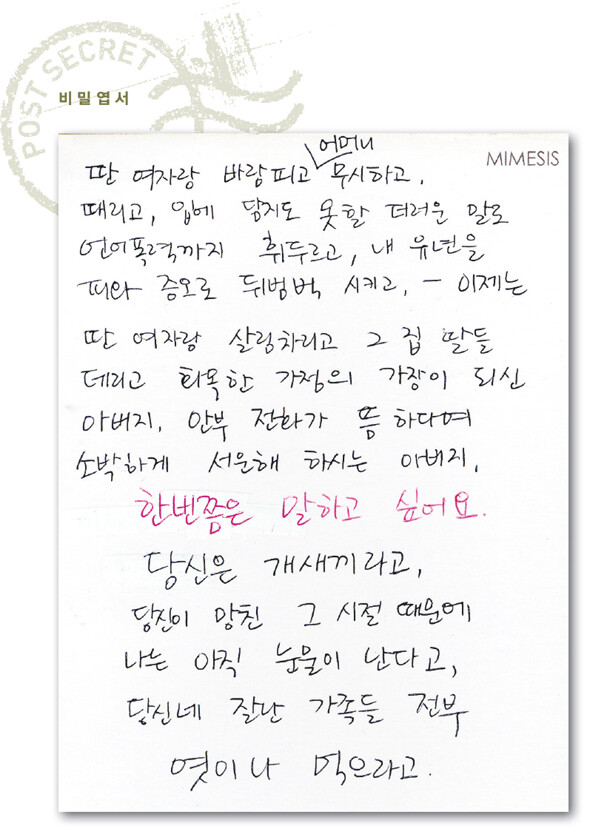 POST SECRET
비밀엽서
MIMESIS
어머니
딴 여자랑 바람피고 무시하고,
때리고, 입에 담지도 못할 더러운 말로
언어폭력까지 휘두르고, 내 유년을
피와 증오로 뒤범벅 시키고, – 이제는
딴 여자랑 살림차리고 그 집 딸들
데리고 화목한 가정의 가장이 되신
아버지. 안부 전화가 뜸하다며
소박하게 서운해 하시는 아버지.
한번쯤은 말하고 싶어요.
당신은 개새끼라고,
당신이 망친 그 시절 때문에
나는 아직 눈물이 난다고,
당신네 잘난 가족들 전부
엿이나 먹으라고.